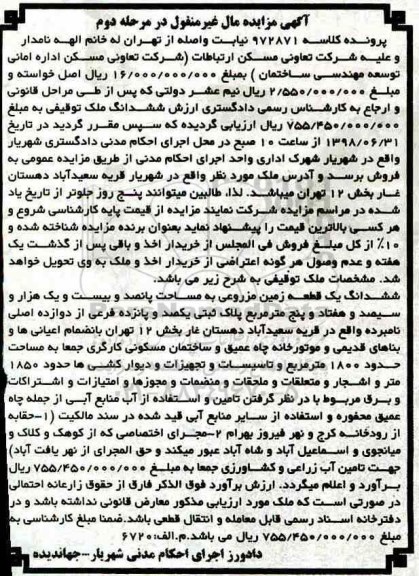 آگهی مزایده مال غیرمنقول در مرحله دوم
پرونده کلاسه ۹۷۲۸۷۱ نیابت واصله از تهران له خانم الهه نامدار
و علیه شرکت تعاونی مسکن ارتباطات (شرکت تعاونی مسکن اداره امانی
توسعه مهندسی ساختمان ) بمبلغ ۱۶/۰۰۰/۰۰۰/۰۰۰ ریال اصل خواسته و
مبلغ ۲/۵۵۰/۰۰۰/۰۰۰ ریال نیم عشر دولتی که پس از طی مراحل قانونی
و ارجاع به کارشناس رسمی دادگستری ارزش ششدانگ ملک توقیفی به مبلغ
۷۵۵/۴۵۰/۰۰۰/۰۰۰ ریال ارزیابی گردیده که سپس مقرر گردید در تاریخ
۱۳۹۸/۰۶/۳۱ از ساعت ۱۰ صبح در محل اجرای احکام مدنی دادگستری شهریار
واقع در شهریار شهرک اداری واحد اجرای احکام مدنی از طریق مزایده عمومی به
فروش برسد و آدرس ملک مورد نظر واقع در شهریار قریه سعیدآباد دهستان
غار بخش ۱۲ تهران میباشد. لذا، طالبین میتوانند پنج روز جلوتر از تاریخ یاد
شده در مراسم مزایده شرکت نمایند مزایده از قیمت پایه کارشناسی شروع و
هر کسی بالاترین قیمت را پیشنهاد نماید بعنوان برنده مزایده شناخته شده و
۱۰٪ از کل مبلغ فروش فی المجلس از خریدار اخذ و باقی پس از گذشت یک
هفته و عدم وصول هر گونه اعتراضی از خریدار اخذ و ملک به وی تحویل خواهد
شد. مشخصات ملک توقیفی به شرح زیر می باشد.
ششدانگ یک قطعه زمین مزروعی به مساحت پانصد و بیست و یک هزار و
سیصد و هفتاد و پنج مترمربع پلاک ثبتی یکصد و پانزده فرعی از دوازده اصلی
نامبرده واقع در قریه سعیدآباد دهستان غار بخش ۱۲ تهران بانضمام اعیانی ها و
بناهای قدیمی و موتورخانه چاه عمیق و ساختمان مسکونی کارگری جمعا به مساحت
حدود ۱۸۰۰ مترمربع و تاسیسات و تجهیزات و دیوار کشی ها حدود ۱۸۵۰
متر و اشجار و متعلقات و ملحقات و منضمات و مجوزها و امتیازات و اشتراکات
و برق مربوط با در نظر گرفتن تامین و استفاده از آب منابع آبی از جمله چاه
عمیق محفوره و استفاده از سایر منابع آبی قید شده در سند مالکیت (۱-حقابه
از رودخانه کرج و نهر فیروز بهرام ۲-مجرای اختصاصی که از کوهک و کلاک و
میانجوی و اسماعیل آباد و شاه آباد عبور میکند و حق المجرای از نهر یافت آباد)
جهت تامین آب زراعی و کشاورزی جمعا به مبلغ ۷۵۵/۴۵۰/۰۰۰/۰۰۰ ریال
برآورد و اعلام میگردد. ارزش برآورد فوق الذکر فارغ از حقوق زارعانه احتمالی
در صورتی است که ملک مورد ارزیابی مذکور معارض قانونی نداشته باشد و در
دفترخانه اسناد رسمی قابل معامله و انتقال قطعی باشد.ضمنا مبلغ کارشناسی به
مبلغ ۷۵۵/۴۵۰/۰۰۰/۰۰۰ ریال می باشد.م.الف:۶۷۲۰
دادورز اجرای احکام مدنی شهریار--جهاندیده